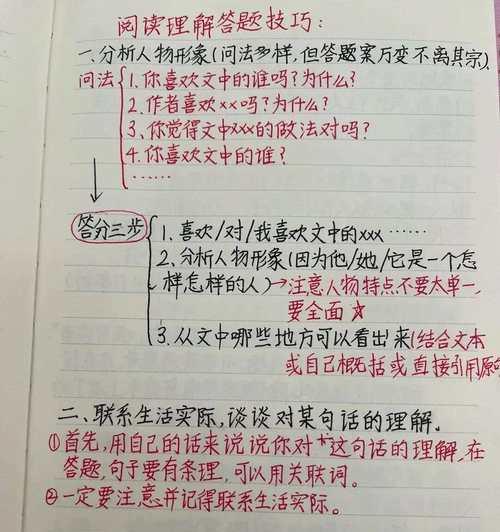 阅读理解答题技巧：
一、分析人物形象(问法多样，但答题案万变不离其宗).
问法 1.你喜欢文中的谁吗？为什么？
2.作者喜欢××吗？为什么？
3、你觉得文中×××的做法对吗？
4.你喜欢文中的谁？
……
答分三步 1.喜欢/对/我喜欢文中的×××……
2.分析人物形象(因为他/她/它是一个怎
样,怎样的人)→注意人物特点不要太单一,
要全面☆
3.从文中哪些地方可以看出来(结合文本
或自己概括或直接引用原
二、联系生活实际,谈谈对某句话的理解.
①首先,用自己的话来说说你对"这句话的理解,在
答题,句子要有条理,可以用关联词。
②一定要注意并记得联系生活实际。